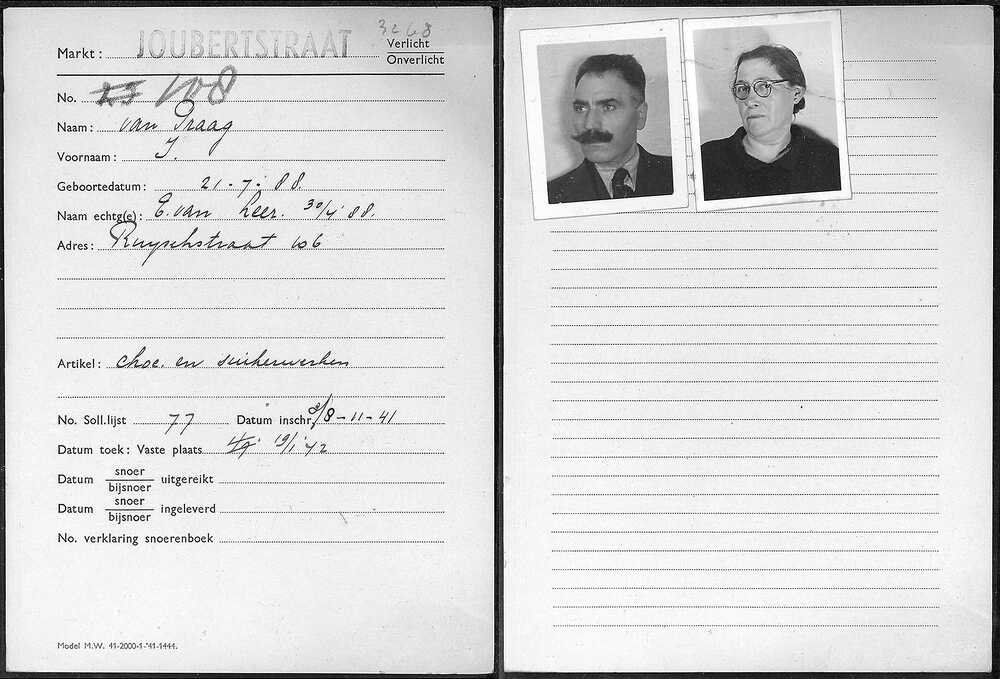 3068
Markt: JOUBERTSTRAAT Verlicht
Onverlicht
No. 23 108
Naam: van Praag
Voornaam: I.
Geboortedatum: 21-7-88.
Naam echtg(e): E. van Leer. 30/4 88.
Adres: Ruyschstraat 106
Artikel: choc. en suikerwerken
No. Soll.lijst 77 Datum inschr. 8-11-41
Datum toek: Vaste plaats 19/1 '42
Datum snoer uitgereikt
bijsnoer
Datum snoer ingeleverd
bijsnoer
No. verklaring snoerenboek
Model M.W. 41-2000-1-'41-1444.